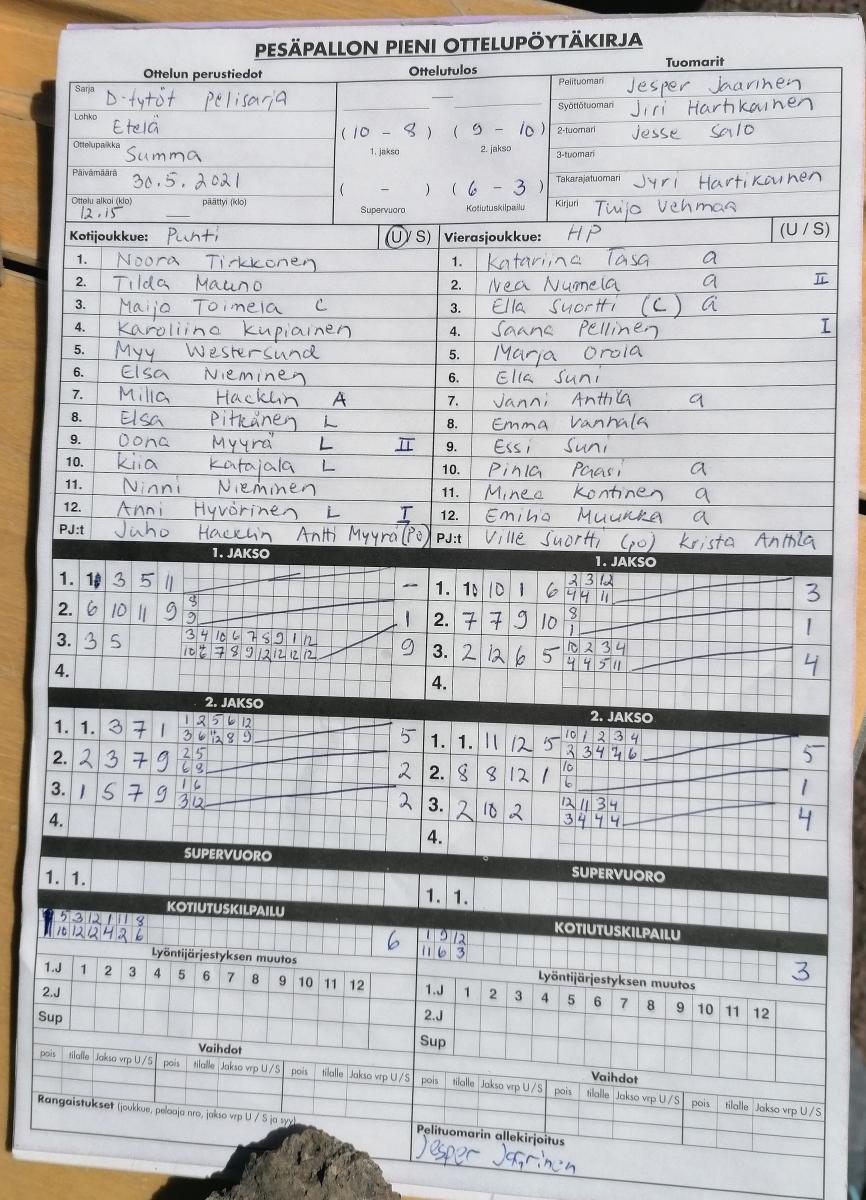 PESÄPALLON PIENI OTTELUPÖYTÄKIRJA
Ottelun perustiedot
Sarja D-tytöt pelisarja
Lohko Etelä
Ottelupaikka Summa
Päivämäärä 30.5.2021
Ottelu alkoi (klo) päättyi (klo)
12.15 —
Ottelutulos
— —
(10 - 8) (9 - 10)
1. jakso 2. jakso
( - ) (6 - 3)
Supervuoro Kotiutuskilpailu
Tuomarit
Pelituomari Jesper Jaarinen
Syöttötuomari Jiri Hartikainen
2-tuomari Jesse Salo
3-tuomari
Takarajatuomari Jyri Hartikainen
Kirjuri Tuija Vehmaa
Kotijoukkue: Puhti (U/S)
1. Noora Tirkkonen
2. Tilda Mauno
3. Maija Toimela C
4. Karoliina Kupiainen
5. Myy Westersund
6. Elsa Nieminen
7. Milla Hacklin A
8. Elsa Pitkänen L
9. Oona Myyrä L II
10. Kiia Katajala L
11. Ninni Nieminen
12. Anni Hyvärinen L I
PJ:t Juho Hacklin Antti Myyrä (po)
Vierasjoukkue: HP (U / S)
1. Katariina Tasa a
2. Nea Numela a II
3. Ella Suortti (C) a
4. Saana Pellinen I
5. Marja Orola
6. Ella Suni
7. Janni Anttila a
8. Emma Vanhala
9. Essi Suni
10. Pinla Paasi a
11. Minea Kontinen a
12. Emilia Muukka a
PJ:t Ville Suortti (po) Krista Anttila
1. JAKSO
1. 1. 3 5 11 —
2. 6 10 11 9 8 1
9
3. 3 5 3 4 10 6 7 8 9 1 12 9
10 6 7 8 9 12 12 12 12
4.
1. JAKSO
1. 1. 10 1 6 2 3 12 3
4 4 11
2. 7 7 9 10 8 1
1
3. 2 12 6 5 10 2 3 4 4
4 4 5 11
4.
2. JAKSO
1. 1. 3 7 1 1 2 5 6 12 5
3 6 12 8 9
2. 2 3 7 9 2 5 2
6 8
3. 1 5 7 9 1 6 2
3 12
4.
2. JAKSO
1. 1. 11 12 5 10 1 2 3 4 5
2 3 4 7 6
2. 8 8 12 1 10 1
6
3. 2 10 2 12 11 3 4 4
3 4 4 4
4.
SUPERVUORO
1. 1.
SUPERVUORO
1. 1.
KOTIUTUSKILPAILU
5 3 12 1 11 8 6
10 12 2 4 2 6
KOTIUTUSKILPAILU
1 9 12 3
11 6 3
Lyöntijärjestyksen muutos
1.J 1 2 3 4 5 6 7 8 9 10 11 12
2.J
Sup
Lyöntijärjestyksen muutos
1.J 1 2 3 4 5 6 7 8 9 10 11 12
2.J
Sup
Vaihdot
pois tilalle Jakso vrp U/S pois tilalle Jakso vrp U/S pois tilalle Jakso vrp U/S
Vaihdot
pois tilalle Jakso vrp U/S pois tilalle Jakso vrp U/S pois tilalle Jakso vrp U/S
Rangaistukset (joukkue, pelaaja nro, jakso vrp U / S ja syy)
Pelituomarin allekirjoitus
Jesper Jaarinen